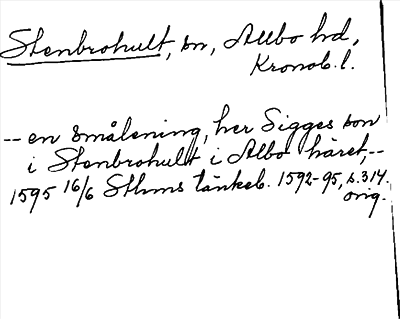 Stenbrohult, sn, Allbo hd,
Kronob. l.
-- en Smålening, her Sigges son
i Stenbrohult i Albo häret, --
1595 16/6 Sthms tänkeb. 1592-95, s. 314.
orig.